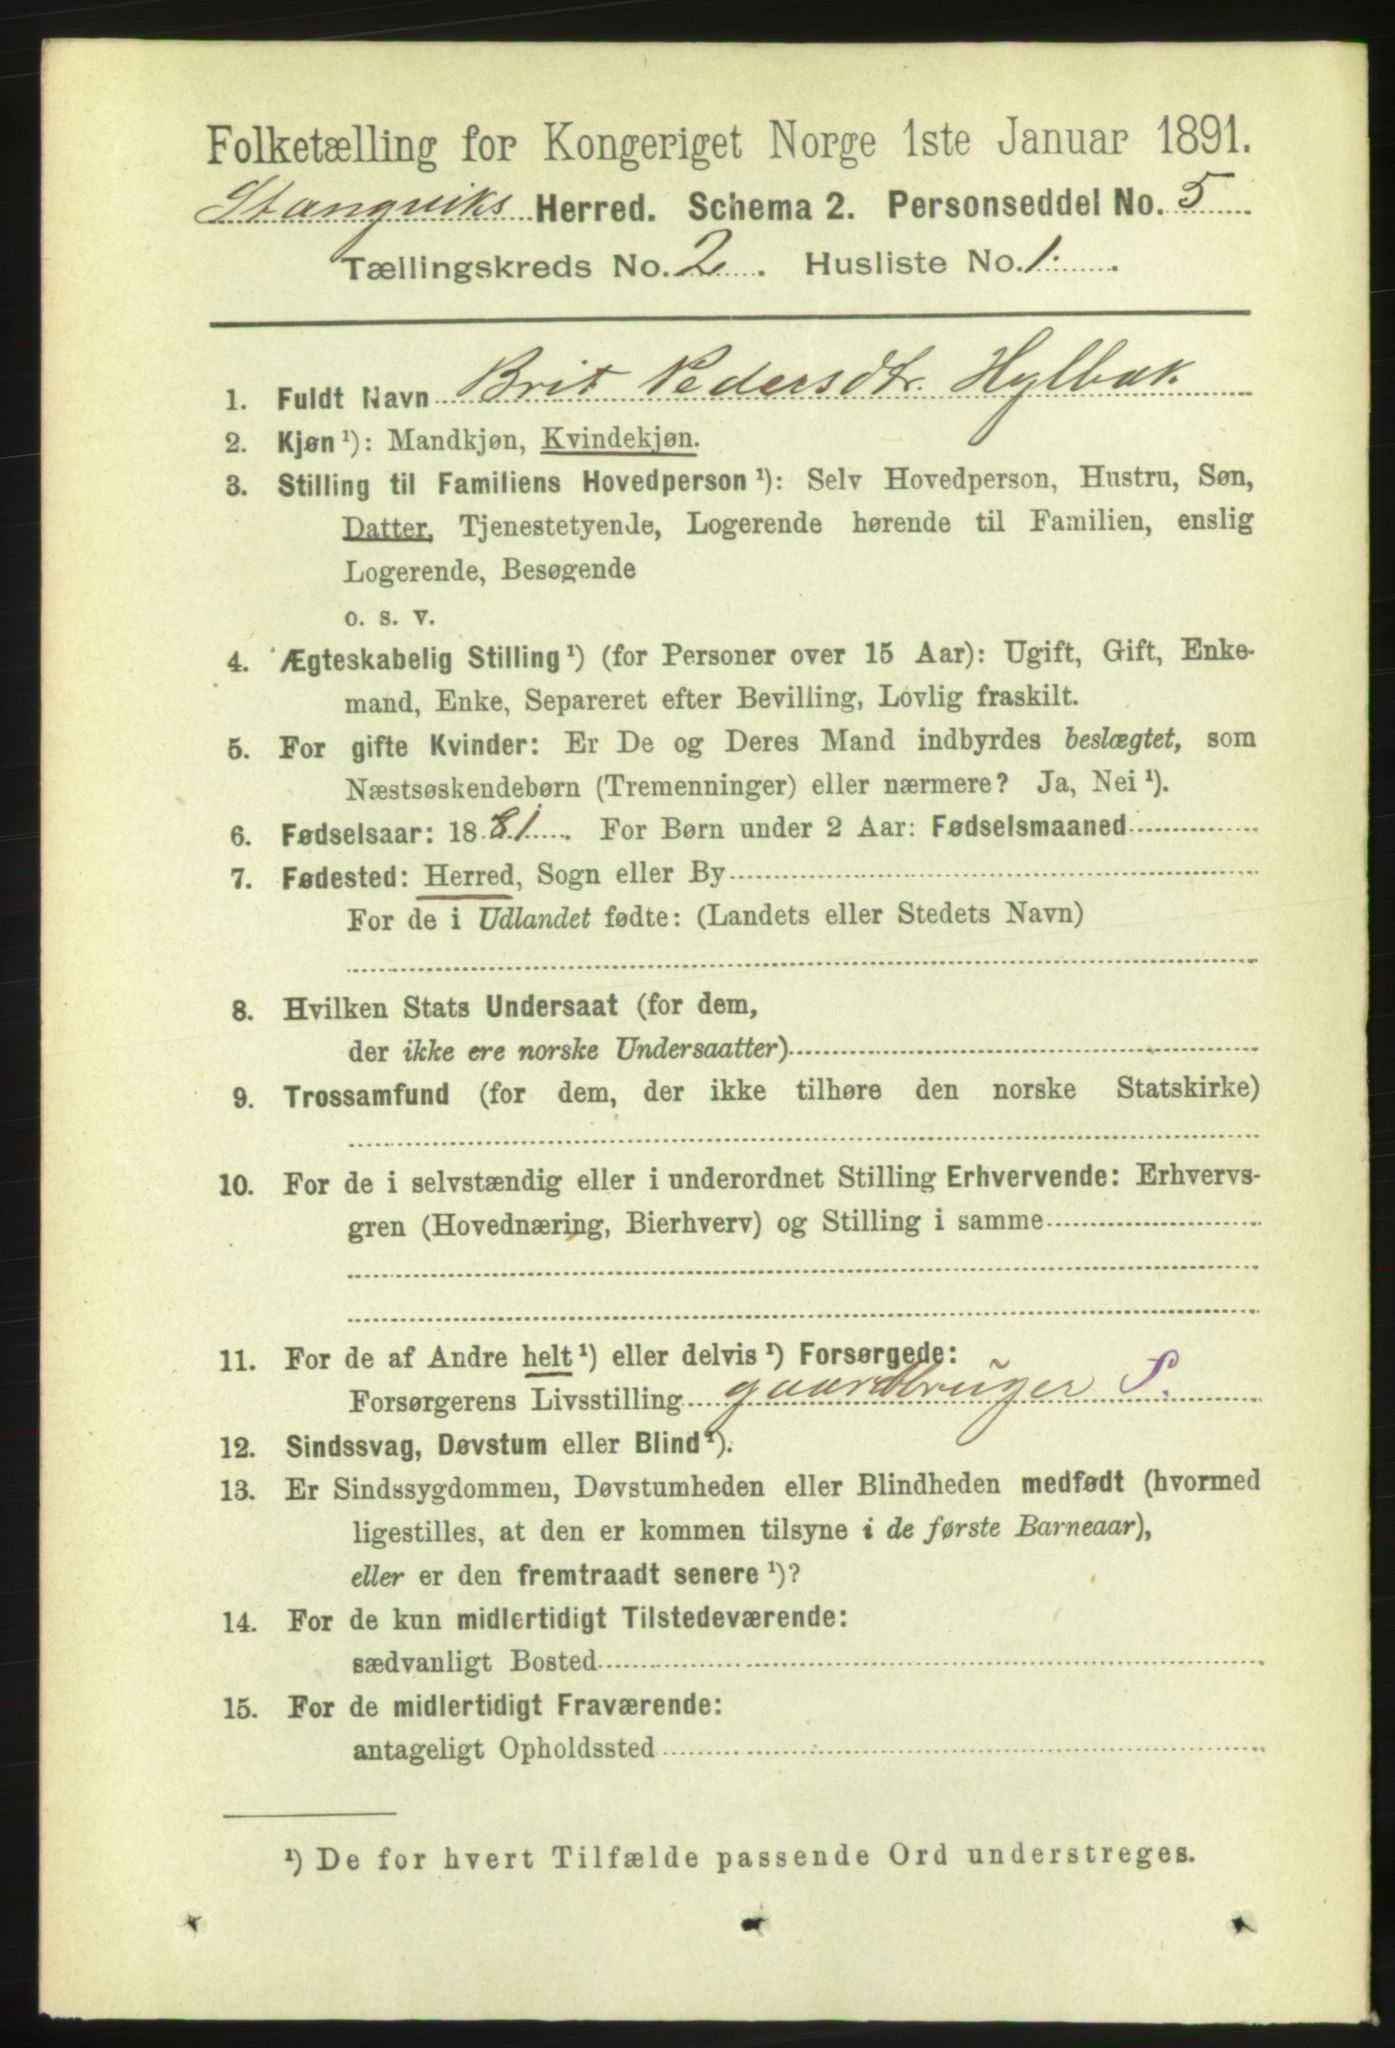 Folketælling for Kongeriget Norge 1ste Januar 1891.
Stangviks Herred. Schema 2. Personseddel No. 5
Tællingskreds No. 2. Husliste No. 1.
1. Fuldt Navn Brit Pedersdtr. Hylbak
2. Kjøn ¹): Mandkjøn, Kvindekjøn.
3. Stilling til Familiens Hovedperson ¹): Selv Hovedperson, Hustru, Søn,
Datter, Tjenestetyende, Logerende hørende til Familien, enslig
Logerende, Besøgende
o. s. v.
4. Ægteskabelig Stilling ¹) (for Personer over 15 Aar): Ugift, Gift, Enke-
mand, Enke, Separeret efter Bevilling, Lovlig fraskilt.
5. For gifte Kvinder: Er De og Deres Mand indbyrdes beslægtet, som
Næstsøskendebørn (Tremenninger) eller nærmere? Ja, Nei ¹).
6. Fødselsaar: 1881. For Børn under 2 Aar: Fødselsmaaned
7. Fødested: Herred, Sogn eller By
For de i Udlandet fødte: (Landets eller Stedets Navn)
8. Hvilken Stats Undersaat (for dem,
der ikke ere norske Undersaatter)
9. Trossamfund (for dem, der ikke tilhøre den norske Statskirke)
10. For de i selvstændig eller i underordnet Stilling Erhvervende: Erhvervs-
gren (Hovednæring, Bierhverv) og Stilling i samme
11. For de af Andre helt ¹) eller delvis ¹) Forsørgede:
Forsørgerens Livsstilling gaardbruger S.
12. Sindssvag, Døvstum eller Blind ¹).
13. Er Sindssygdommen, Døvstumheden eller Blindheden medfødt (hvormed
ligestilles, at den er kommen tilsyne i de første Barneaar),
eller er den fremtraadt senere ¹)?
14. For de kun midlertidigt Tilstedeværende:
sædvanligt Bosted
15. For de midlertidigt Fraværende:
antageligt Opholdssted
¹) De for hvert Tilfælde passende Ord understreges.